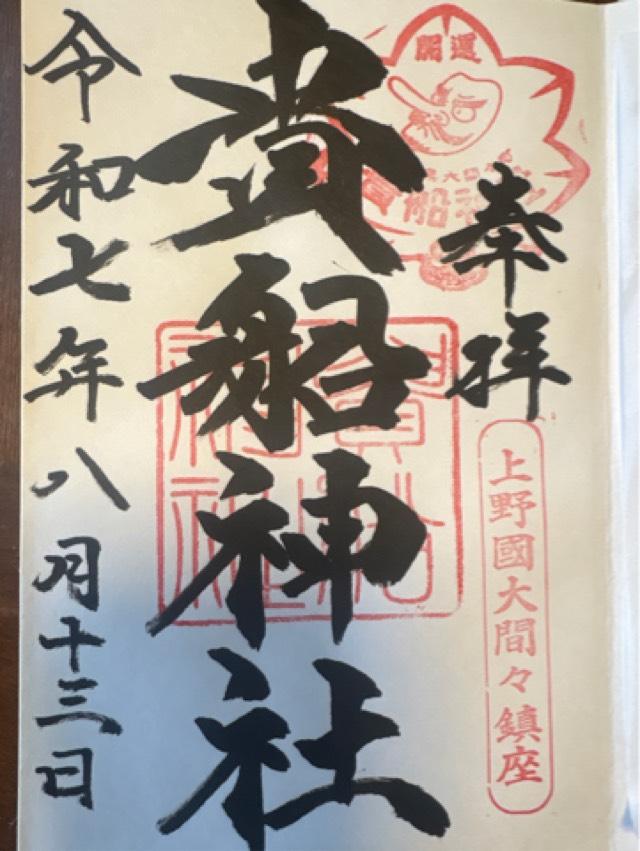 開運
奉拝
上野國大間々鎮座
貴船神社
貴船
神社
令和七年八月十三日